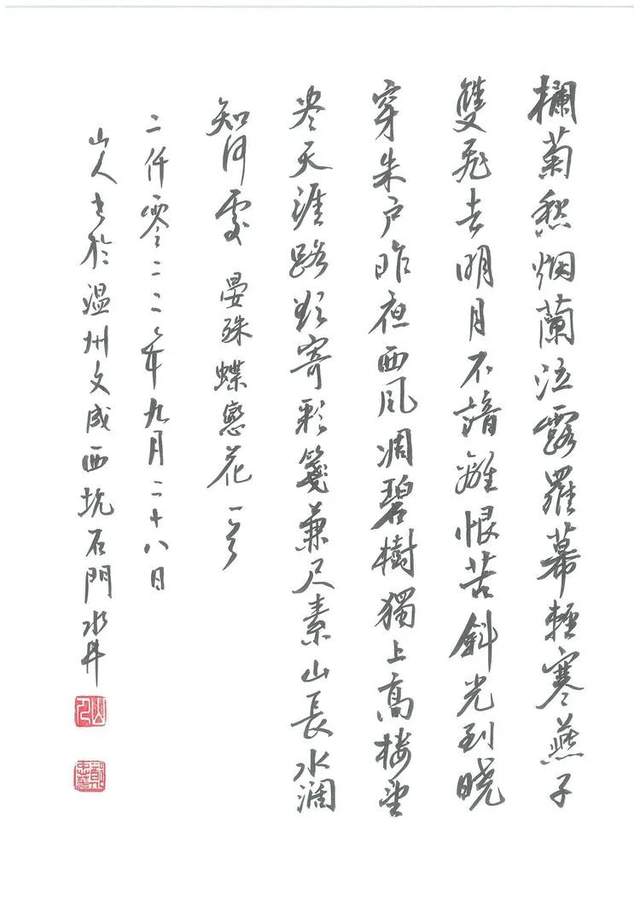 欄菊愁烟蘭泣露羅幕輕寒燕子
雙飛去明月不諳離恨苦斜光到晓
穿朱户昨夜西风凋碧樹獨上高楼望
尽天涯路欲寄彩箋兼尺素山長水濶
知何處 晏殊蝶戀花一首
二仟零二二年九月二十八日
山人书於温州文成西坑石門水井
山人